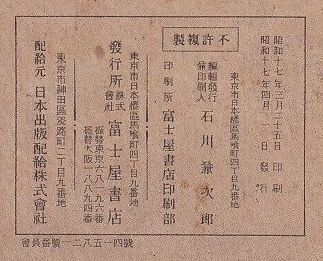 不許複製
昭和十七年三月二十五日印刷
昭和十七年四月一日發行
東京市日本橋區馬喰町四丁目九番地
編輯發行兼印刷人 石川兼次郎
印刷所 富士屋書店印刷部
東京市日本橋區馬喰町四丁目九番地
發行所 株式會社 富士屋書店
振替東京六八一九六番
振替大阪一八八九四番
東京市神田區淡路町二丁目九番地
配給元 日本出版配給株式會社
會員番號一二八五一四號